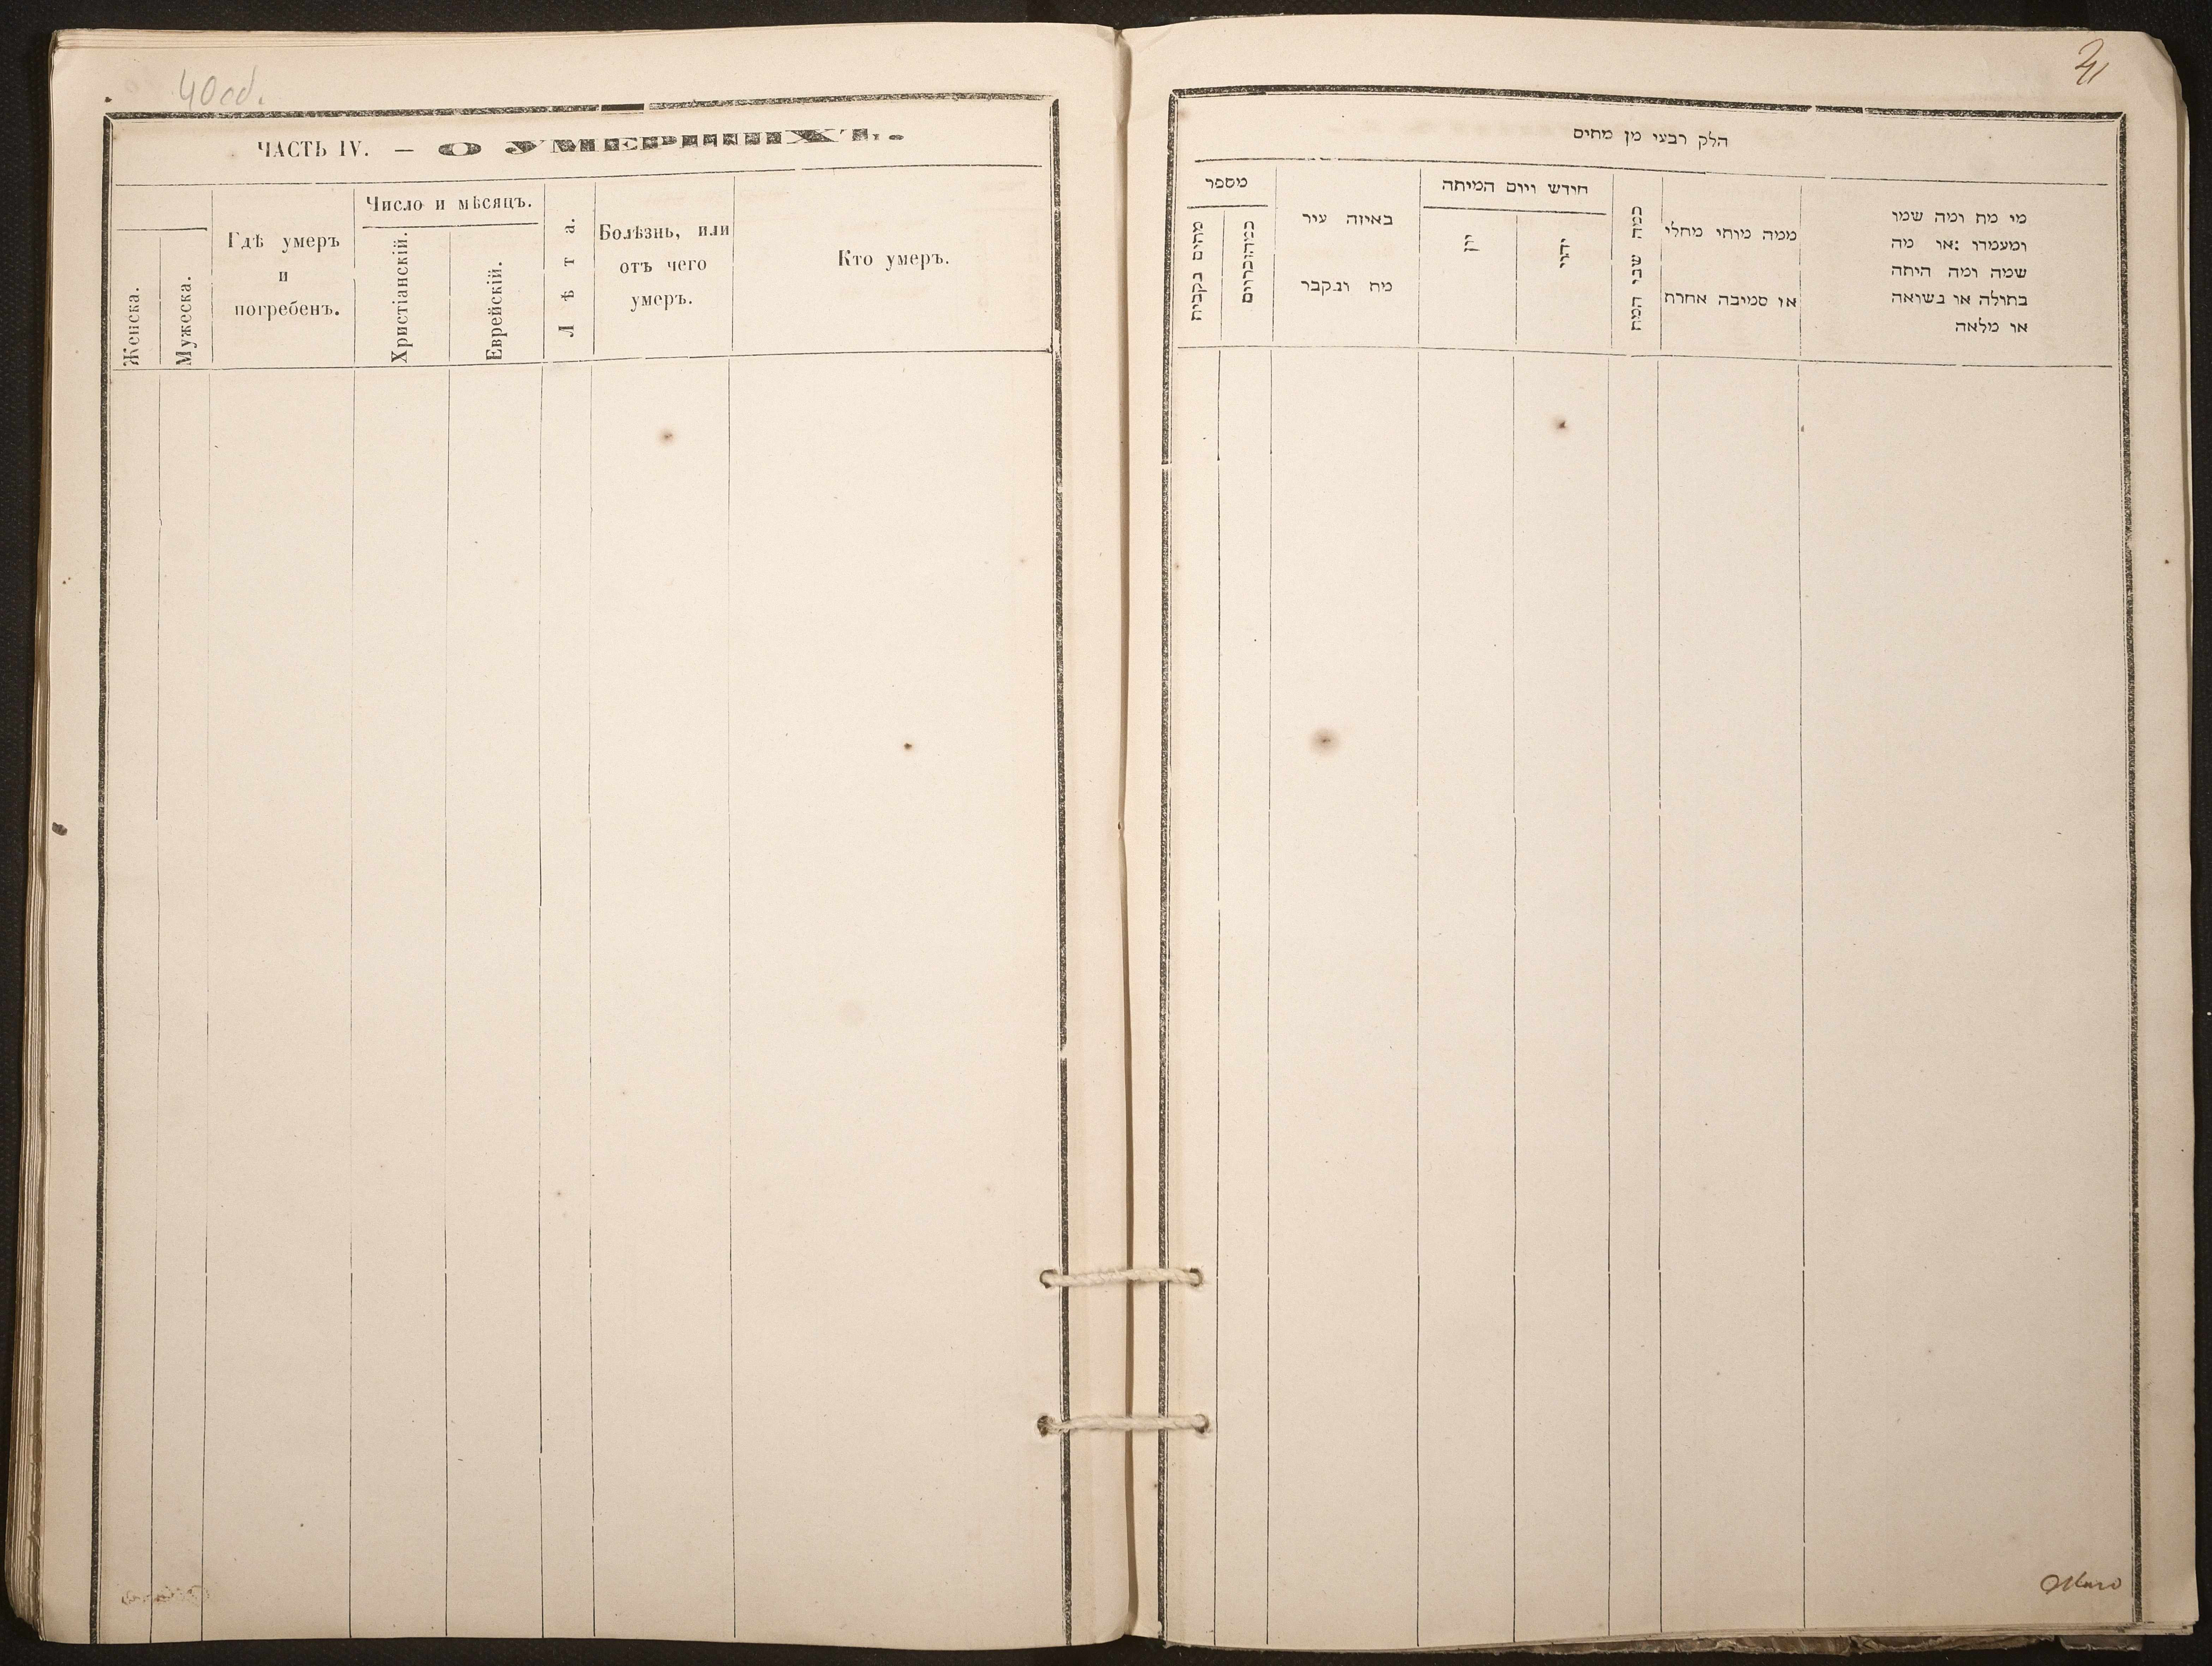 40 об.
ЧАСТЬ IV. — О УМЕРШИХЪ.
Женска.
Мужеска.
Гдѣ умеръ
и
погребенъ.
Число и мѣсяцъ.
Христіанскій.
Еврейскій.
Лѣта.
Болѣзнь, или
отъ чего
умеръ.
Кто умеръ.
41
הלק רבעי מן מחים
מספר
מהים נקבית
כמהזכרים
באיזה עיר
מח ונקבר
חודש ויום המיתה
יון
יהדי
כמה שני המח
ממה מוחי מחלי
או סמיבה אחרח
מי מח ומה שמו
ומעמדו :או מה
שמה ומה היחה
בחולה או נשואה
או מלאה